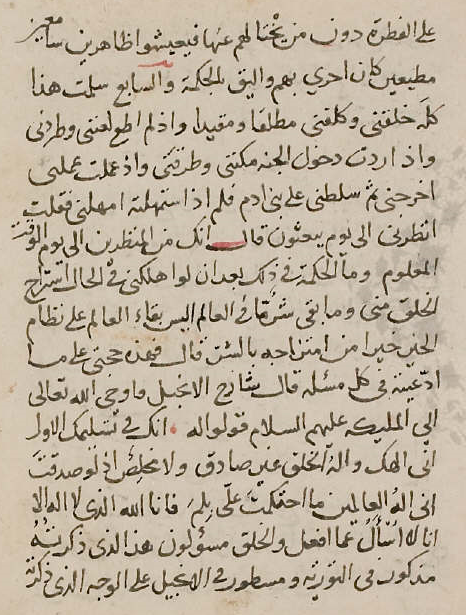 على الفطرة دون من يختالهم عنها فيعيشوا ظاهرين سامعين
مطيعين كان احري بهم واليق لحكمة والسابع سلمت هذا
كله خلقني وكلفني مطلقا ومقيدا واذ لم اطع لعنني وطردني
واذ اردت دخول الجنه مكنني وطرقني واذ عملت عملي
اخرجني ثم سلطني على بني ادم فلم اذا استمهلته امهلني فقلت
انظرني الى يوم يبعثون قال انك من المنظرين الى يوم الوقت
المعلوم وما الحكمة في ذلك بعد ان لو اهلكني في الحال استراح
الخلق مني وما بقى شر ما في العالم اليس بقاء العالم على نظام
الخير خيرا من امتزاجه بالشر قال فهذه حجتي على ما
ادعيته في كل مسئلة قال شارح الانجيل فاوحي الله تعالى
الى المليكه عليهم السلام قولوا له انك في تسليمك الاول
اني الهك واله الخلق غير صادق ولا مخلص اذ لو صدقت
اني اله العالمين ما احتكمت علي بلم فانا الله الذي لا اله الا
انا لا اسأل عما افعل والخلق مسؤلون هذا الذي ذكرته
مذكور في التورية ومسطور في الانجيل على الوجه الذي ذكرته